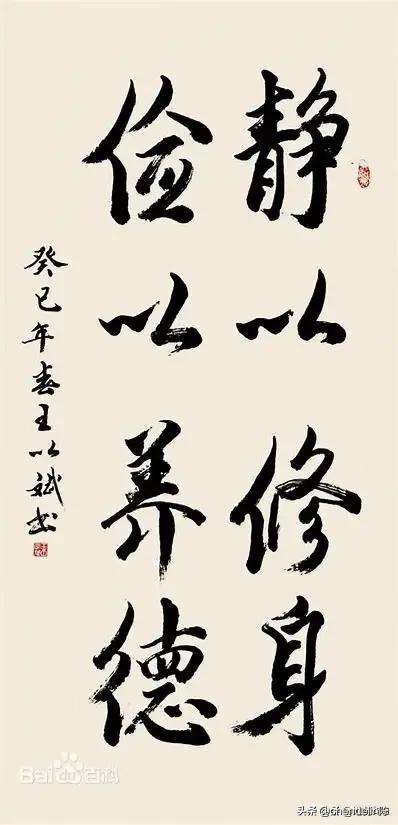 静以修身
俭以养德
癸巳年春王以斌书
Bai百科
头条